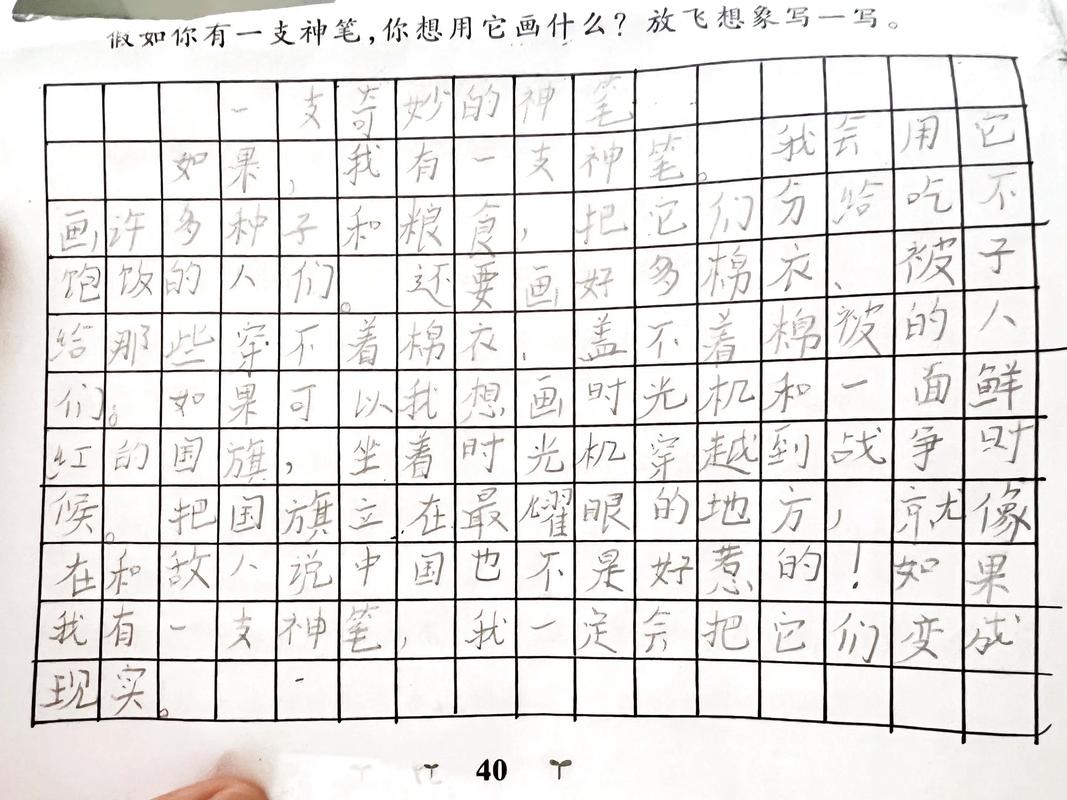 假如你有一支神笔，你想用它画什么？放飞想象写一写。
一支奇妙的神笔
如果，我有一支神笔。我会用它
画许多种子和粮食，把它们分给吃不
饱饭的人们。还要画好多棉衣、被子
给那些穿不着棉衣、盖不着棉被的人
们。如果可以我想画时光机和一面鲜
红的国旗，坐着时光机穿越到战争时
候。把国旗立在最耀眼的地方，就像
在和敌人说中国也不是好惹的！如果
我有一支神笔，我一定会把它们变成
现实。
40